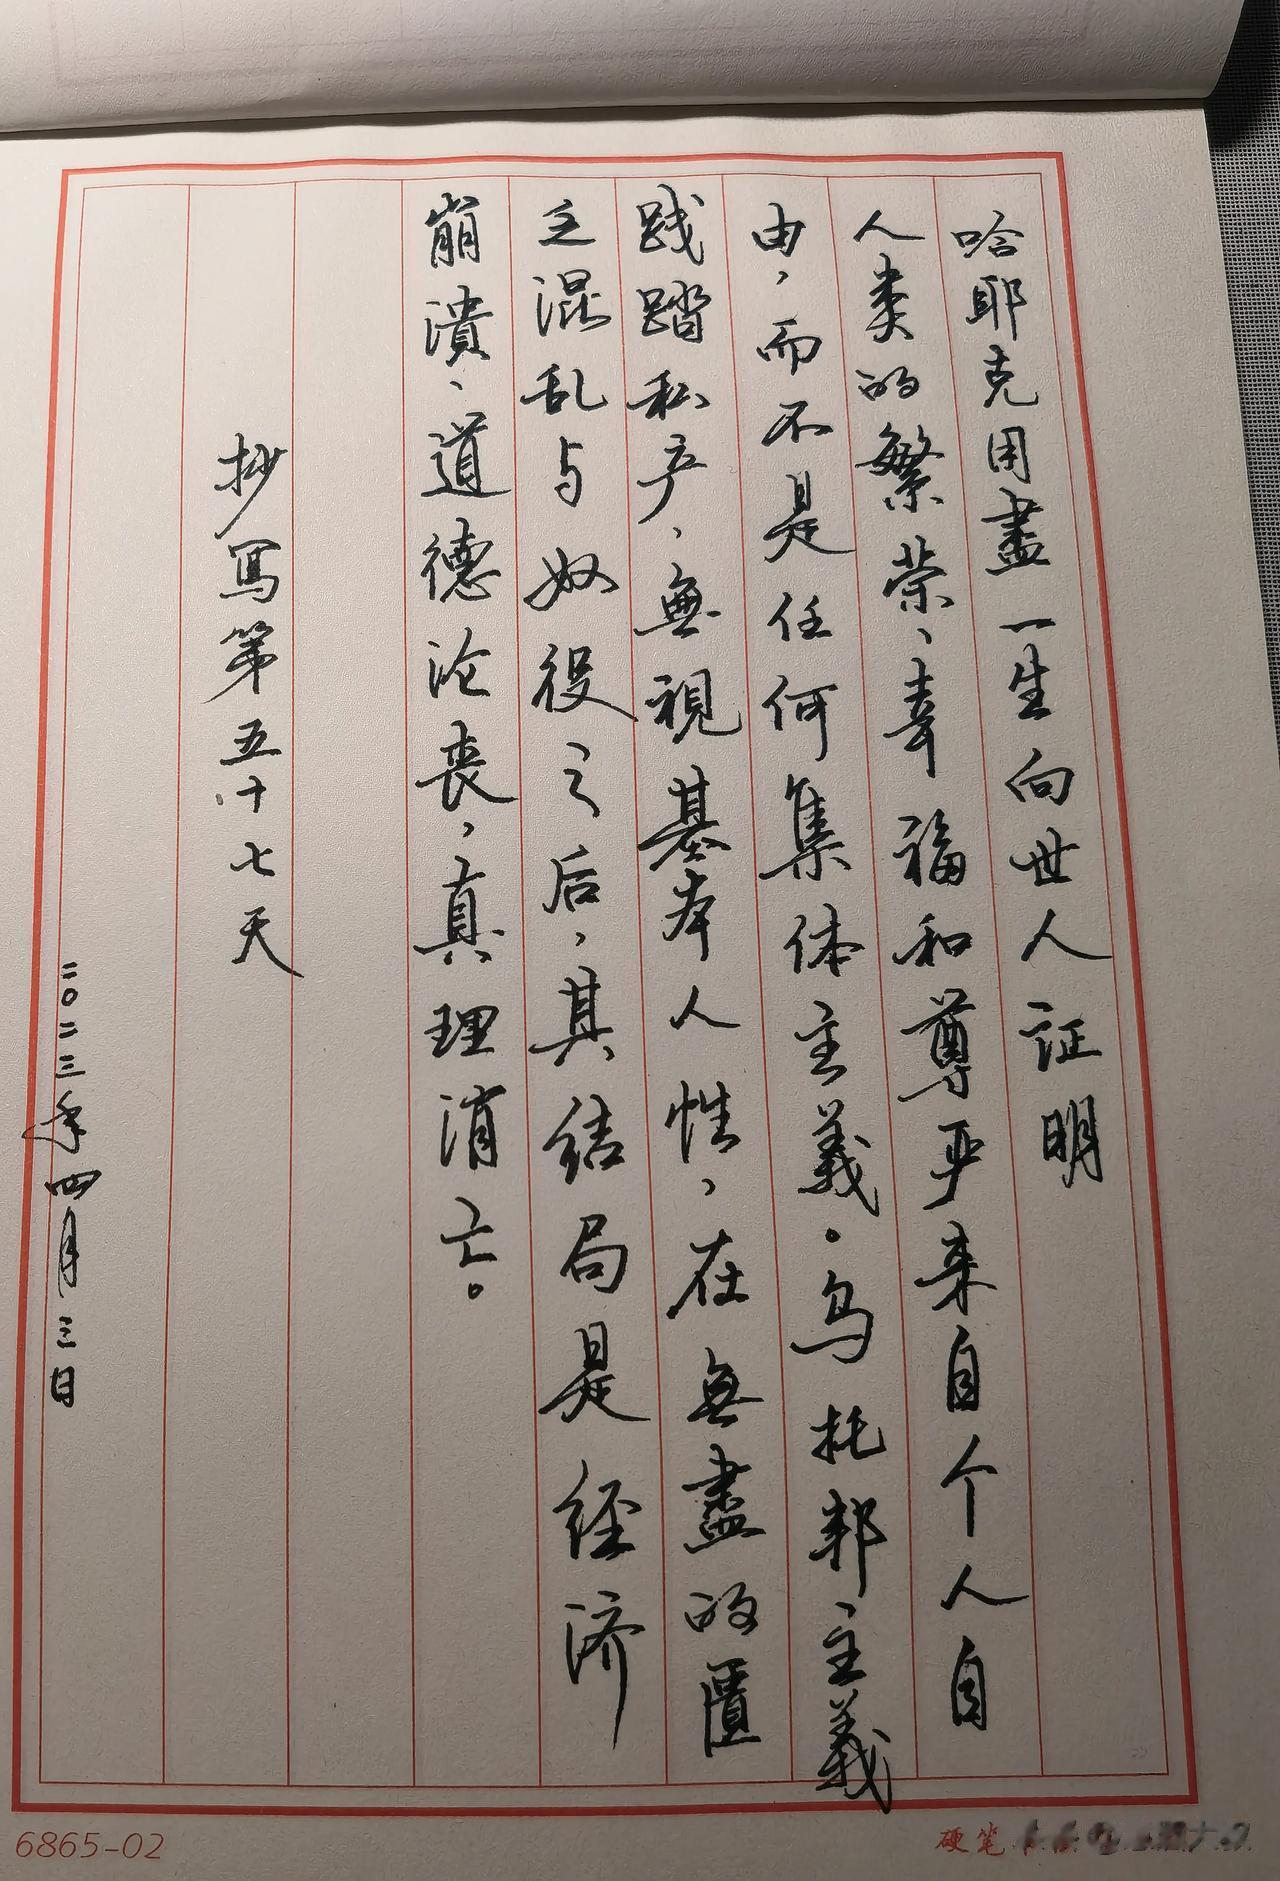 哈耶克用盡一生向世人证明
人类的繁荣、幸福和尊严来自个人自
由，而不是任何集体主義。乌托邦主義
践踏私产，無視基本人性，在無盡的匮
乏混乱与奴役之后，其结局是经济
崩溃、道德沦丧，真理消亡。
抄写第五十七天
二〇二三年四月三日
6865-02
硬笔